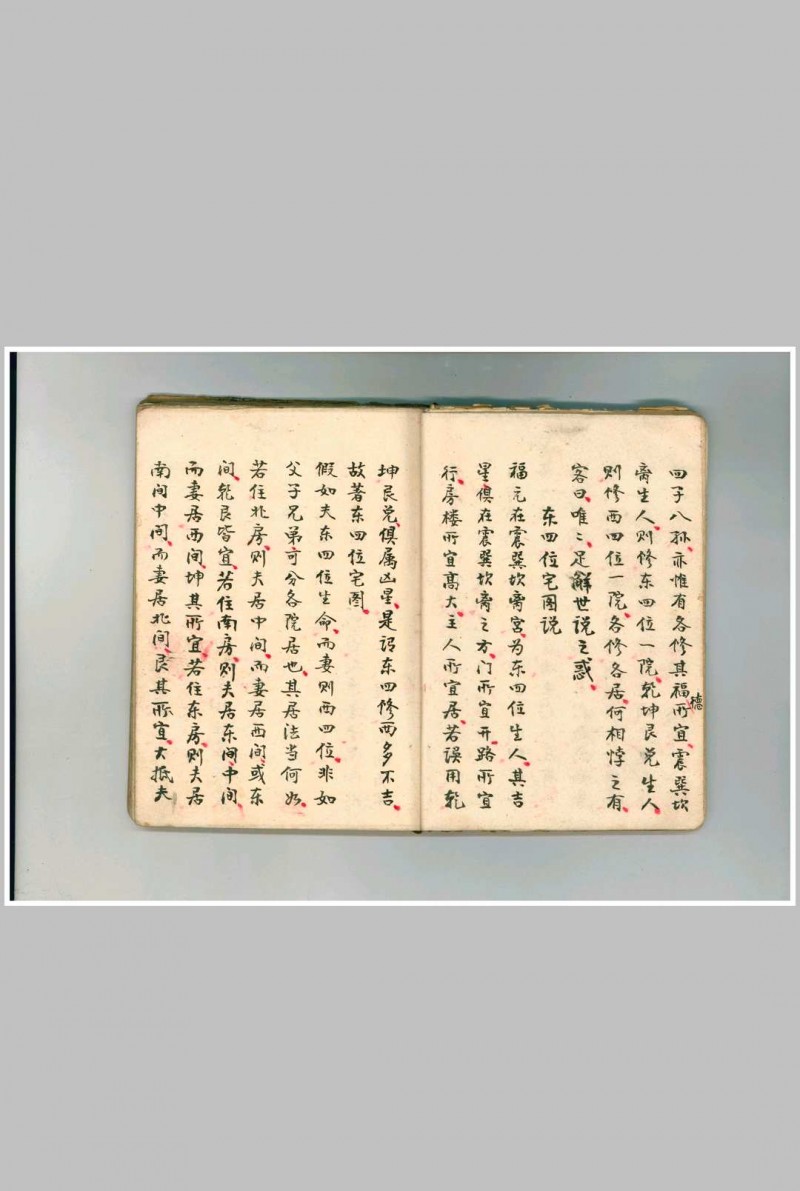 四子八孙、亦惟有各修其福所宜、震巽坎
离生人、则修东四位一院、乾坤艮兑生人
则修西四位一院、各修各居、何相悖之有、
客曰、唯々、足解世说之惑、
东四位宅图说
福元在震巽坎离宫、为东四位生人、其吉
星俱在震巽坎离之方、门所宜开、路所宜
行、房楼所宜高大、主人所宜居、若误用乾
坤艮兑、俱属凶星、是谓东四修西多不吉、
故著东四位宅图、
假如夫东四位生命、而妻则西四位、非如
父子兄弟可分各院居也、其居法当何如、
若住北房、则夫居中间、而妻居西间、或东
间、乾艮皆宜、若住南房、则夫居东间、中间、
而妻居西间、坤其所宜、若住东房、则夫居
南间中间、而妻居北间、艮其所宜、大抵夫